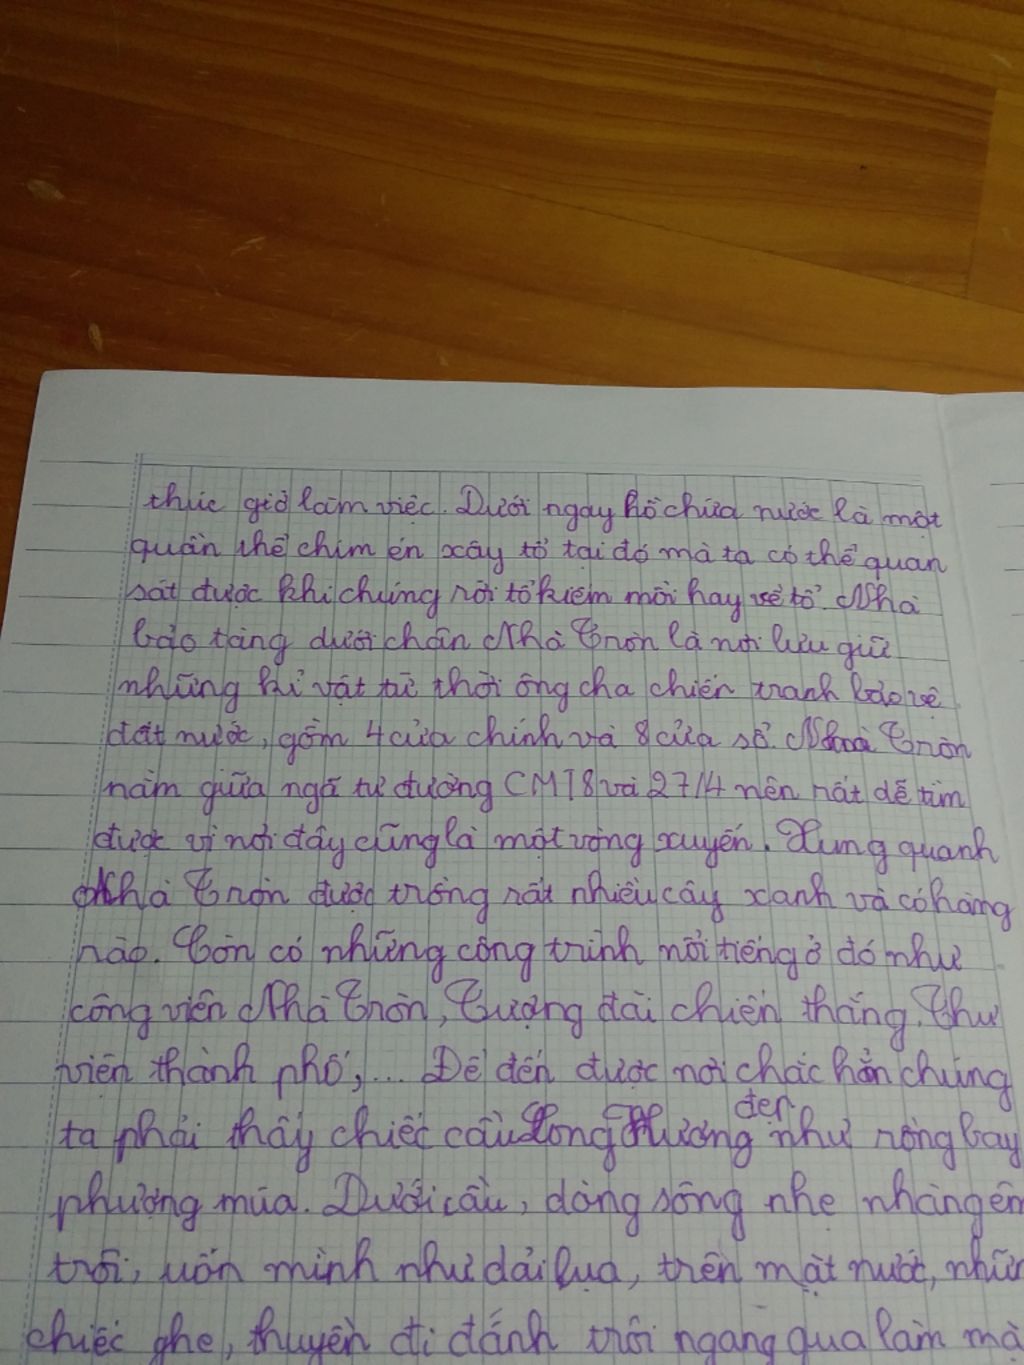 thức giờ làm việc. Dưới ngay hồ chứa nước là một
quần thể chim én xây tổ tại đó mà ta có thể quan
sát được khi chúng rời tổ kiếm mồi hay về tổ. Nhà
bảo tàng dưới chân Nhà Tròn là nơi lưu giữ
những kỉ vật từ thời ông cha chiến tranh bảo vệ
đất nước, gồm 4 cửa chính và 8 cửa sổ. Nhà Tròn
nằm giữa ngã tư đường CMT8 và 27/4 nên rất dễ tìm
được vì nơi đây cũng là một vòng xuyến. Xung quanh
Nhà Tròn được trồng rất nhiều cây xanh và có hàng
rào. Còn có những công trình nổi tiếng ở đó như
công viên Nhà Tròn, Tượng đài chiến thắng, Thư
viện thành phố,... Để đến được nơi chắc hẳn chúng
ta phải thấy chiếc cầu Long Hương đẹp như rồng bay
phượng múa. Dưới cầu, dòng sông nhẹ nhàng êm
trôi, uốn mình như dải lụa, trên mặt nước, nhữn
chiếc ghe, thuyền đi đánh trôi ngang qua làm mà